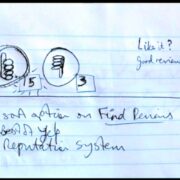 Like it?
Good review
5 3
sort option on Find Reviews
Yelp
Reputation System